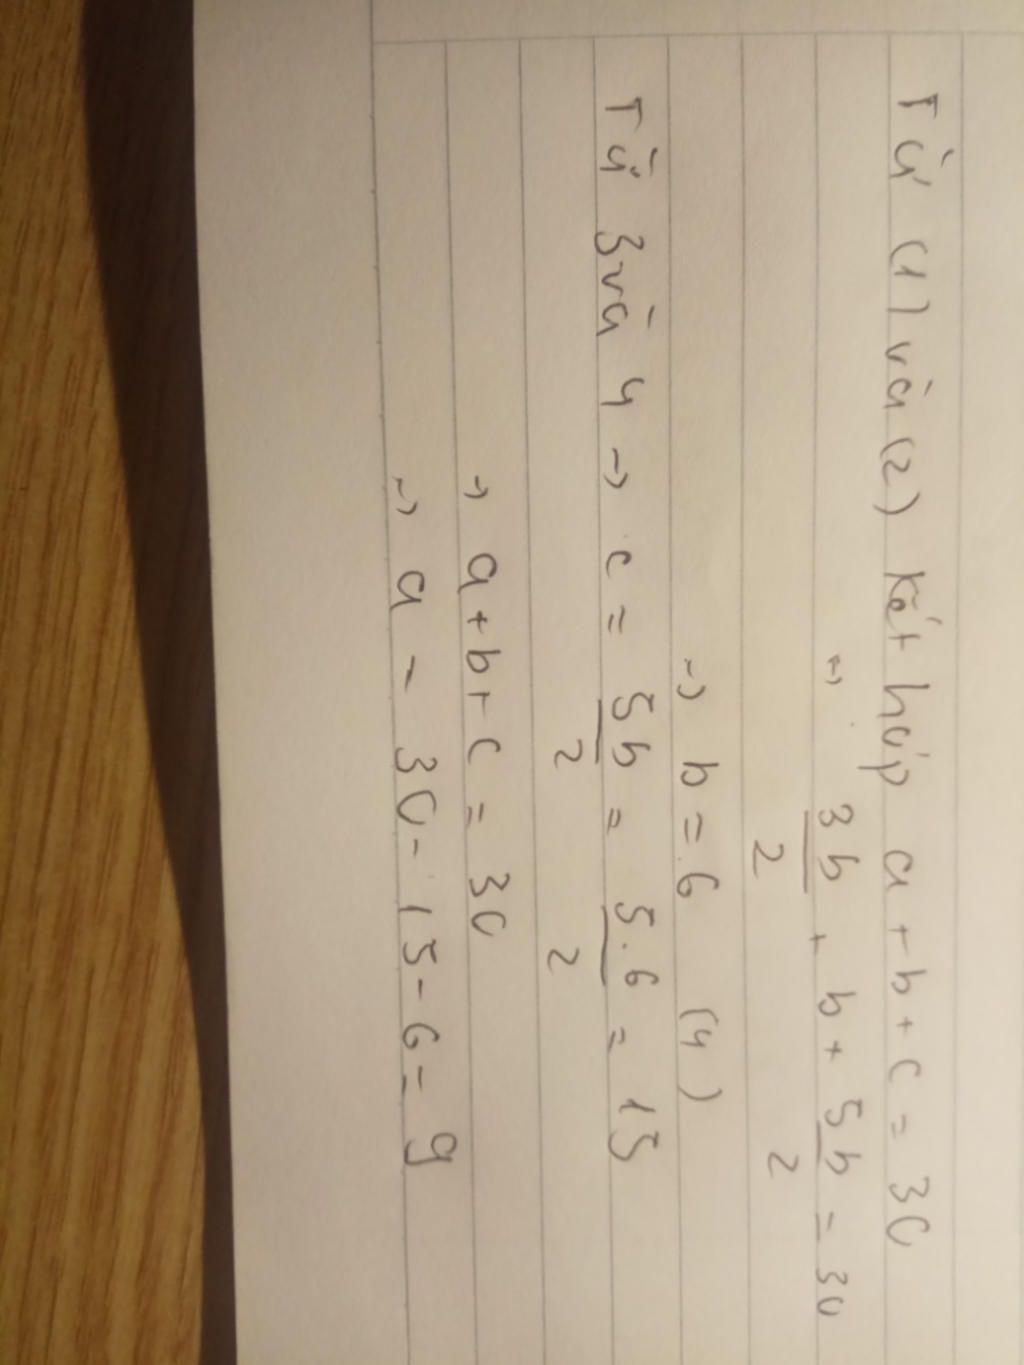 Từ (1) và (2) kết hợp a + b + c = 30
→ 3b/2 + b + 5b/2 = 30
→ b = 6 (4)
Từ 3 và 4 → c = 5b/2 = 5.6/2 = 15
→ a + b + c = 30
→ a = 30 - 15 - 6 = 9